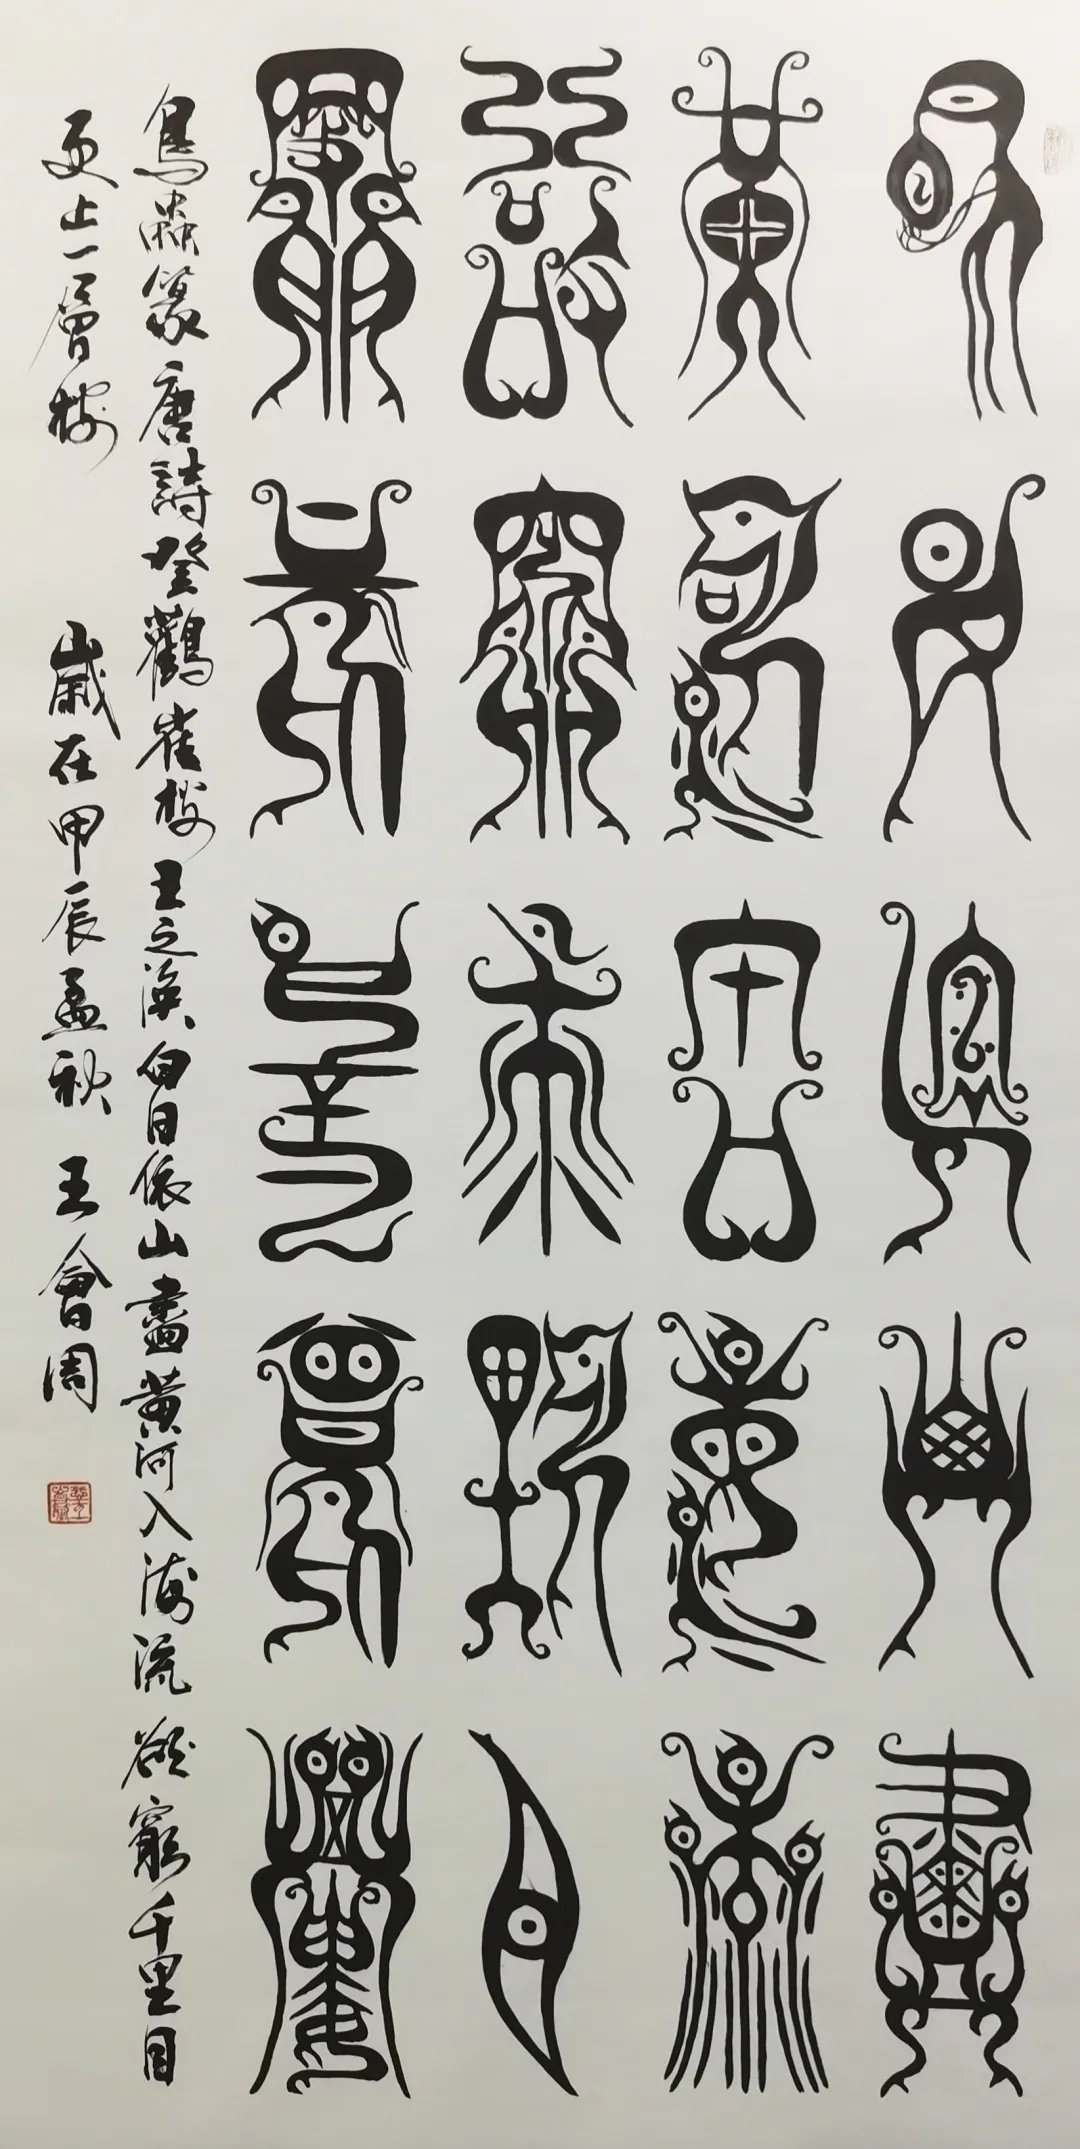 白日依山盡
黄河入海流
欲窮千里目
更上一層樓
鳥蟲篆唐詩登鸛雀樓王之渙白日依山盡黄河入海流欲窮千里目
更上一層樓 歲在甲辰孟秋 王會周